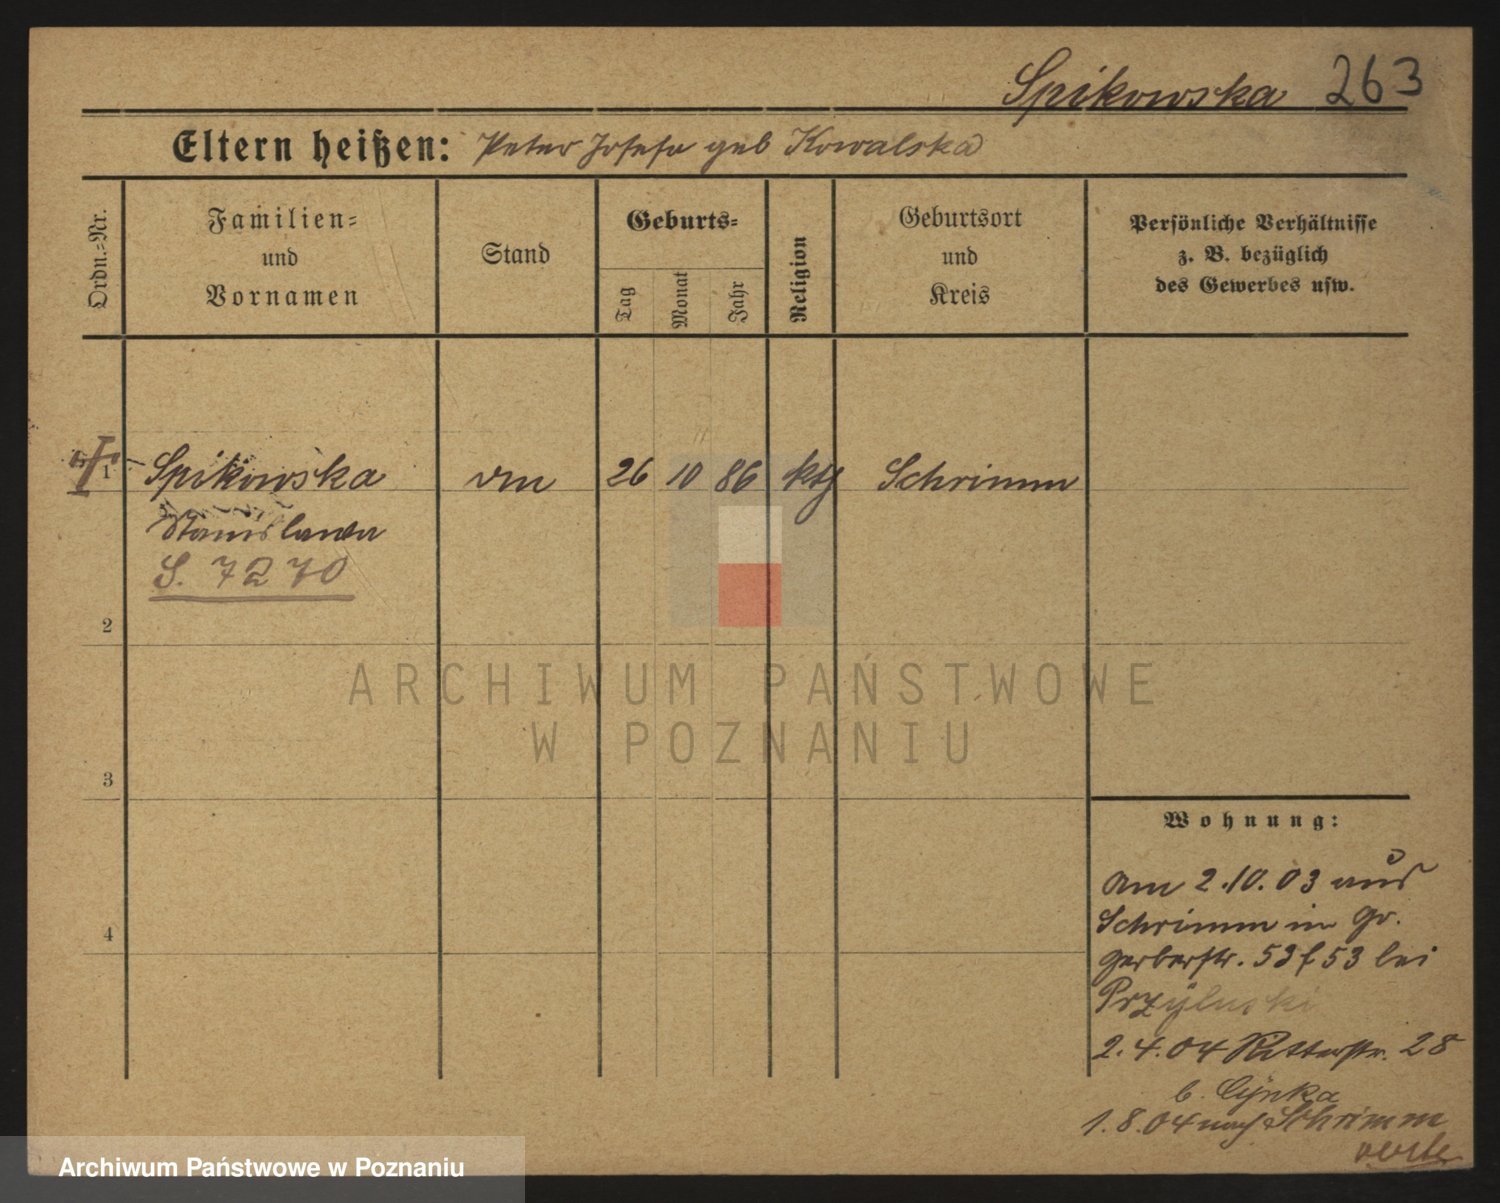 Spikowska 263
Eltern heißen: Peter Josefa geb Kowalska
Ordn.-Nr.
Familien-
und
Vornamen
Stand
Geburts-
Tag
Monat
Jahr
Religion
Geburtsort
und
Kreis
Persönliche Verhältnisse
z. B. bezüglich
des Gewerbes usw.
1 Spikowska 26 10 86 kth Schrimm
Stanislawa
S. 7270
2
3
4
Wohnung:
am 2.10.03 aus
Schrimm in Gr.
Gerberstr. 53 bei
Przyluski
2.4.04 Ritterstr. 28
b. Cynka
1.8.04 nach Schrimm
ARCHIWUM PAŃSTWOWE
W POZNANIU
Archiwum Państwowe w Poznaniu